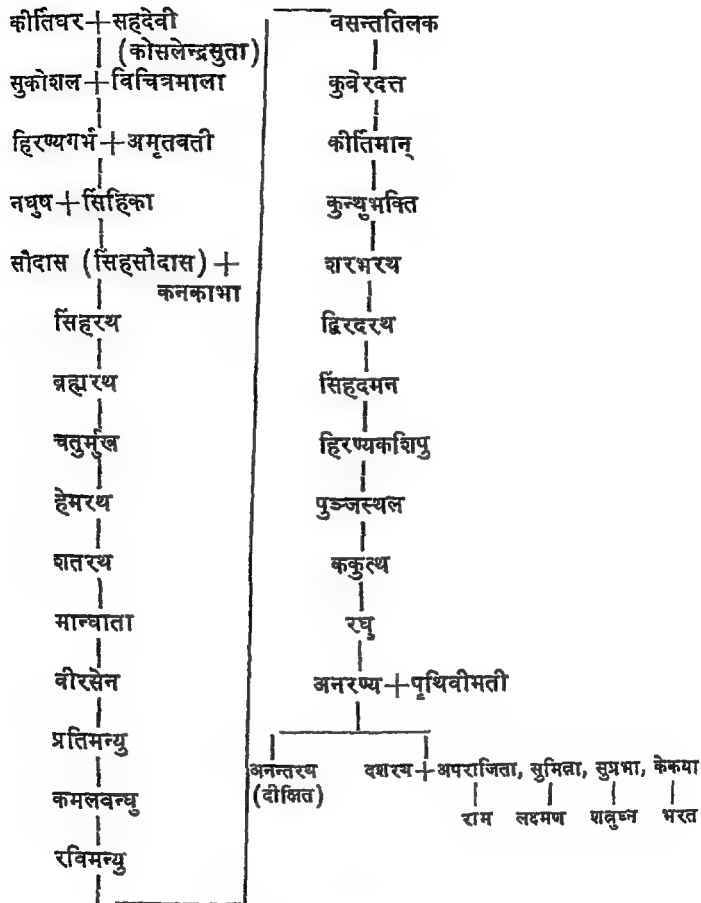 कीर्तिधर + सहदेवी
(कोसलेन्द्रसुता)
सुकोशल + विचित्रमाला
हिरण्यगर्भ + अमृतवती
नघुष + सिंहिका
सौदास (सिंहसौदास) +
कनकाभा
सिंहरथ
ब्रह्मरथ
चतुर्मुख
हेमरथ
शतरथ
मान्धाता
वीरसेन
प्रतिमन्यु
कमलबन्धु
रविमन्यु
वसन्ततिलक
कुवेरदत्त
कीर्तिमान्
कुन्थुभक्ति
शरभरथ
द्विरदरथ
सिंहदमन
हिरण्यकशिपु
पुञ्जस्थल
ककुत्थ
रघु
अनरण्य + पृथिवीमती
अनन्तरथ दशरथ + अपराजिता, सुमित्रा, सुप्रभा, केकया
(दीक्षित) राम लक्ष्मण शत्रुघ्न भरत